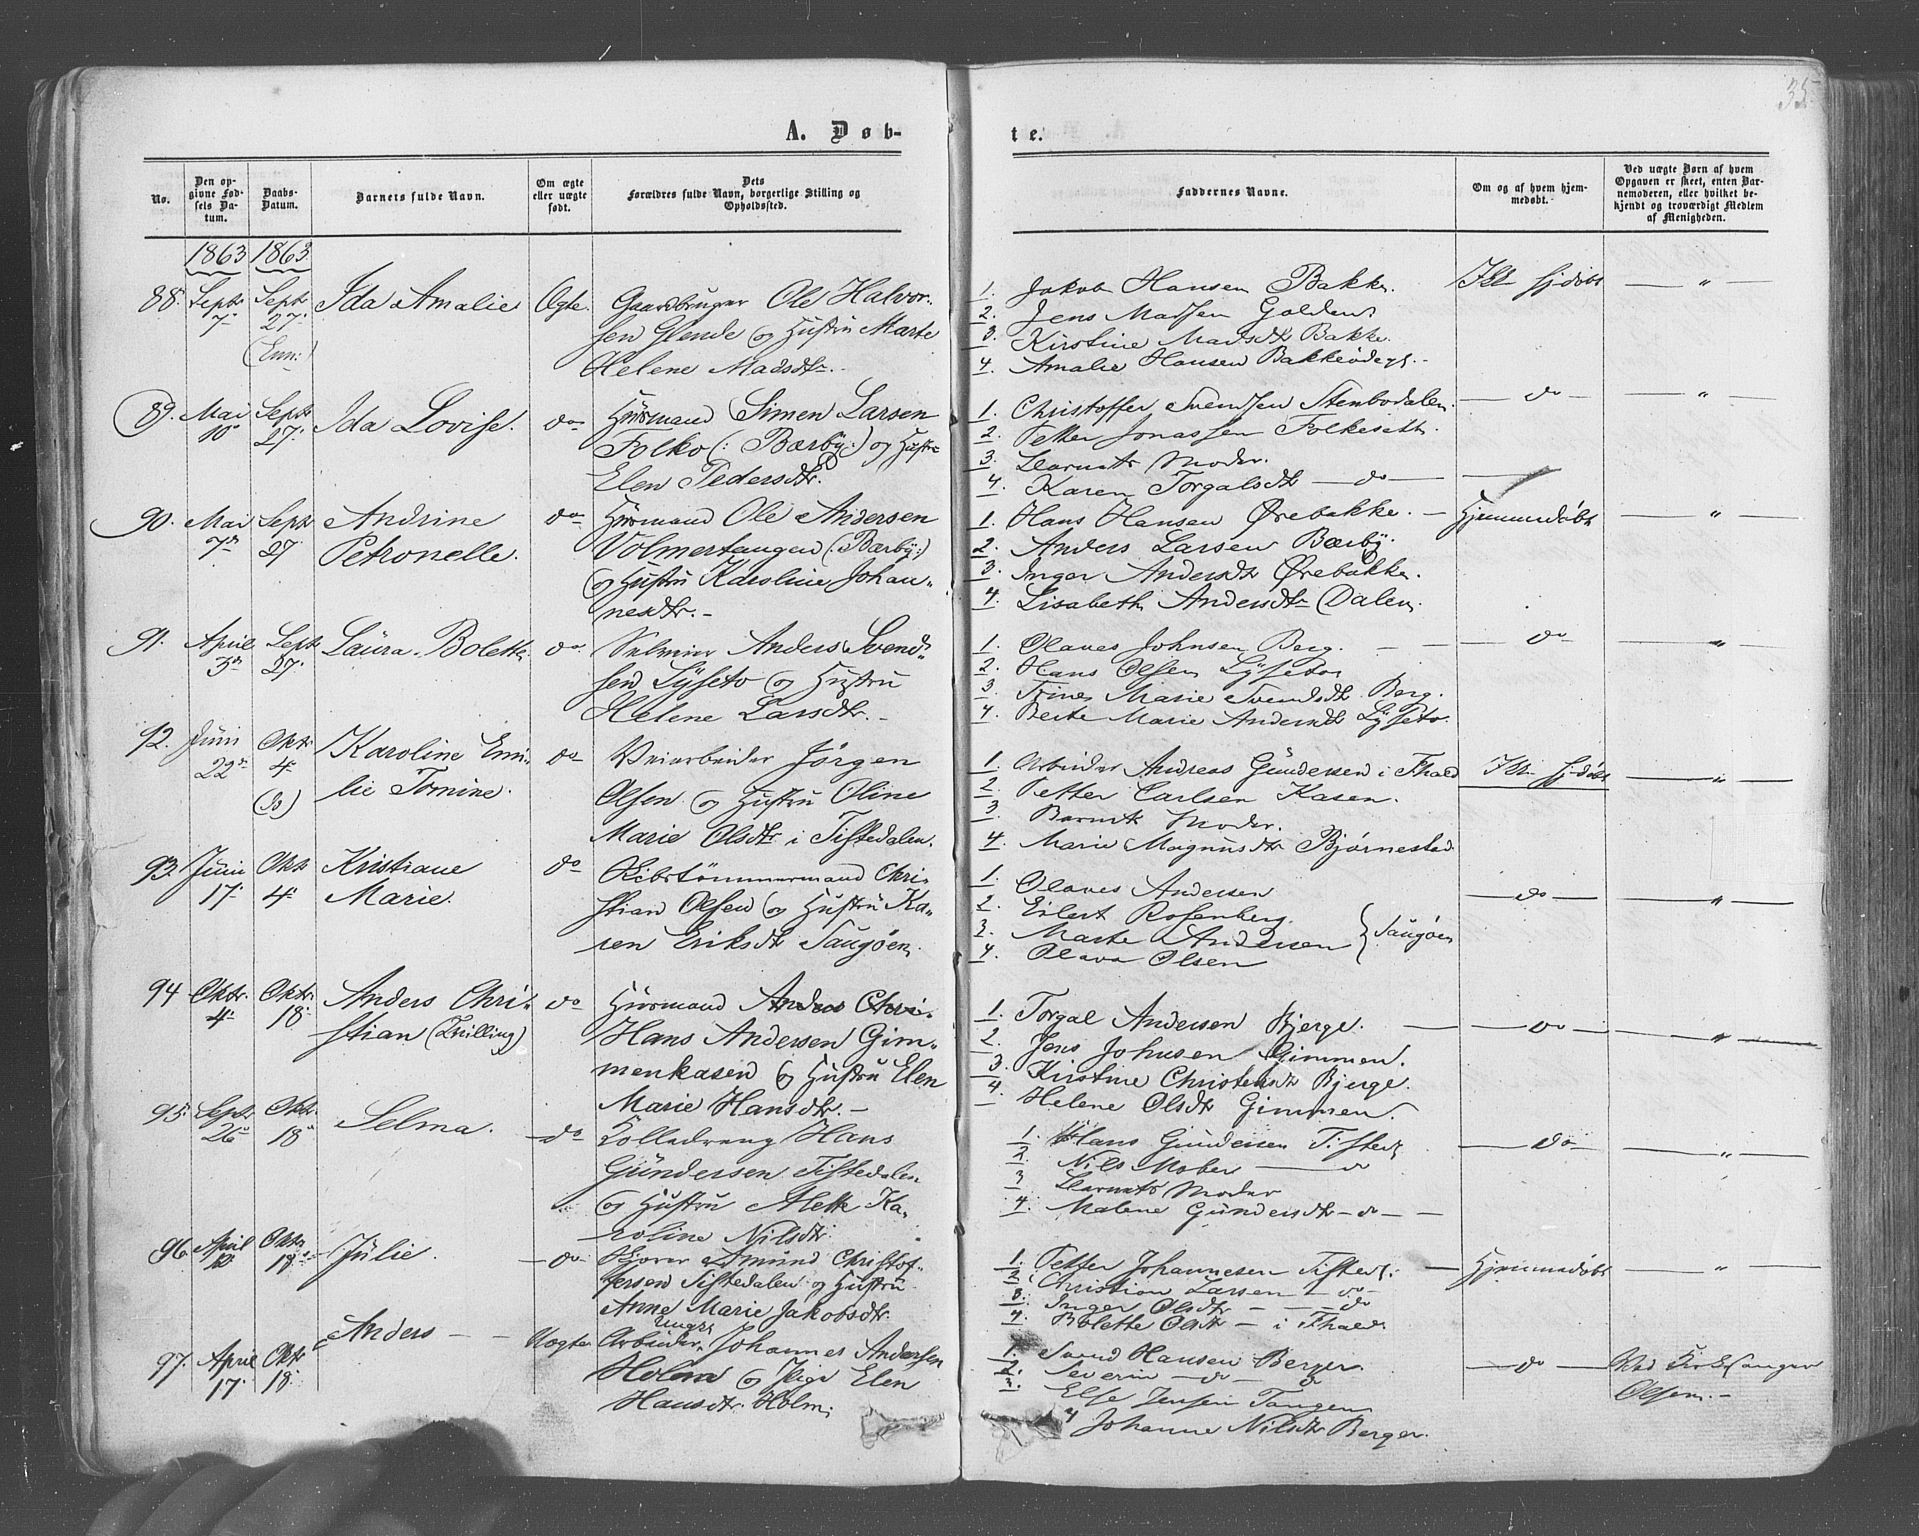 35
A. Døb-
te.
No.
Den op-
givne Fød-
sels Da-
tum.
Daabs-
Datum.
Barnets fulde Navn.
Om ægte
eller uægte
født.
Dets
Forældres fulde Navn, borgerlige Stilling og
Opholdssted.
Faddernes Navne.
Om og af hvem hjem-
medøbt.
Ved uægte Børn af hvem
Opgaven er skeet, enten Bar-
nemoderen, eller hvilket be-
kjendt og troværdigt Medlem
af Menigheden.
1863 1863
88. Septr 7 Septr 27 (Enn:) Ida Amalie Ægte. Gaardbruger Ole Halvor-
sen Glende og Hustru Marte
Helene Madsdtr.
1. Jakob Hansen Bakke. Ikke hjdøbt — " —
2. Jens Madsen
3. Kirstine Madsdtr Bakke.
4. Amalie Hansen
89. Mai 10 Septr 27. Ida Lovise. do Huusmand Simen Larsen
Folko (: Bærby:) og Hustru
Elen Pedersdtr.
1. Christoffer Svendsen Stenbodalen. — do — — " —
2. Petter Jonassen
3. Barnets Moder.
4. Karen Torgalsdtr — do —
90. Mai 7de Septr 27 Andrine
Petronelle. do Huusmand Ole Andersen
Volmertangen (: Bærby:)
og Hustru Karoline Johan-
nesdtr. -
1. Hans Hansen Ørebakke. - Hjemmedøbt — " —
2. Anders Larsen Bærby.
3. Inger Andersdtr Ørebakke.
4. Lisabeth Andersdtr Dalen.
91. April 3de Septr 27. Laura Bolette do Selveier Anders Svend-
sen Lyseto og Hustru
Helene Larsdtr. -
1. Olaves Johnsen Berg. - - — do — — " —
2. Hans Olsen
3. Trine Marie Svendsdtr Berg.
4. Berte Marie Andersdtr Lyseto.
92. Juni 22de Oktr 4. (do) Karoline Emi-
lie Tomine. do Veiarbeider Jørgen
Olsen og Hustru Oline
Marie Olsdtr i Tistedalen.
1. Arbeider Andreas Gundersen i Fhald Ikke hjdøbt — " —
2. Petter Carlsen Kasen.
3. Barnets Moder.
4. Marie Magnusdtr Bjørnestad
93. Juni 17. Okt 4. Kristiane
Marie. do Skibstømmermand Chri-
stian Olsen og Hustru Ka-
ren Eriksdtr Saugøen.
1. Olaves Andersen — do — — " —
2. Eilert Rosenberg.
3. Marte Andersen } Saugøen
4. Olava Olsen
94 Oktr. 4. Oktr. 18. Anders Chri-
stian (Tvilling) do Huusmand Anders Chri-
Hans Andersen Gim-
menkasen og Hustru Elen
Marie Hansdtr. -
1. Torgal Andersen Bjerge. — — do — — " —
2. Jens Johnsen Gimmen.
3. Kirstine Christensdtr Bjerge.
4. Helene Olsdtr Gimmen.
95. Septr 26 Oktr. 18. Selma. — do Kolledreng Hans
Gundersen Tistedalen
og Hustru Alette Ka-
roline Nilsdtr.
1. Hans Gundersen Tisted: — do — — " —
2. Nils Mober — do
3. Barnets Moder
4. Malene Gundersdtr - do -
96. April Oktr 18. Julie. — do Amund Christof-
fersen Tistedalen og Hustru
Anne Marie Jakobsdtr.
1. Petter Johannesen Tisted: — Hjemmedøbt — " —
2. Christian Larsen — do
3. Inger Olsdtr - - do
4. Bolette Olsdtr - i Fhald.
97. April 17. Oktr 18. Anders — — Uægte Ungk: Arbeider Johannes Andersen
Holm og Pige Elen
Hansdtr Holm.
1. Svend Hansen Berger. — do — Ved Kirkesanger
Olsen. -
2. Severin — do — do
3. Else Jensen Tangen
4 Johanne Nilsdtr Berger.